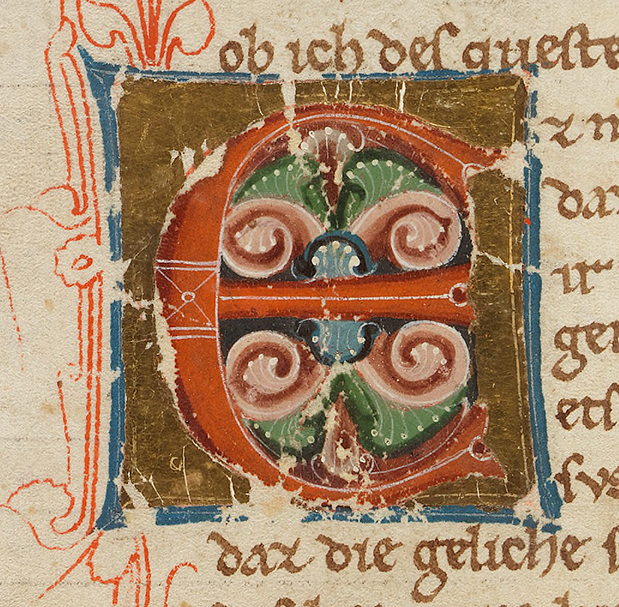 ob ich des queste
E z n
daz
ir
gen
ets
sus
daz die geliche s